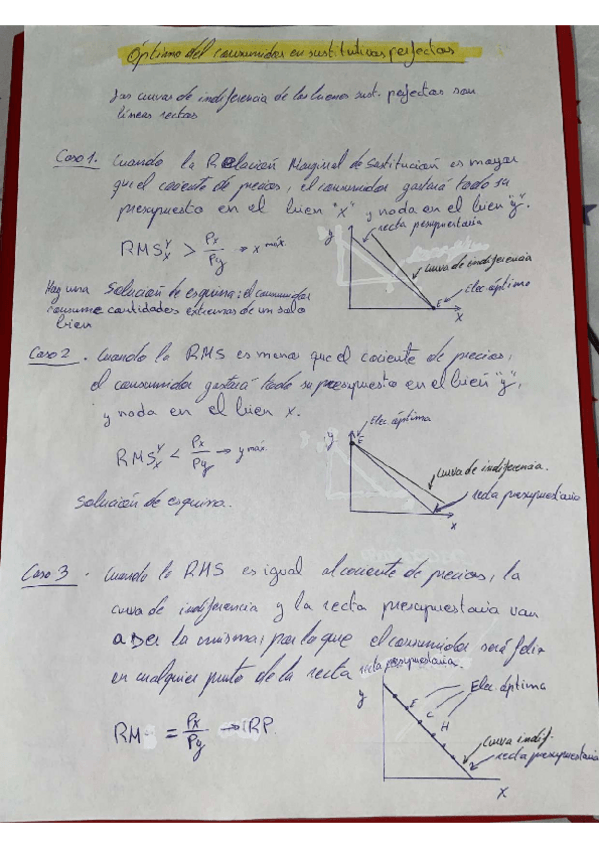 Óptimo del consumidor en sustitutivos perfectos
Las curvas de indiferencia de los bienes sust. perfectos son
líneas rectas
Caso 1. Cuando la Relación Marginal de Sustitución es mayor
que el cociente de precios, el consumidor gastará todo su
presupuesto en el bien "x" y nada en el bien "y".
RMS^y_x > Px/Py → x máx.
y
recta presupuestaria
curva de indiferencia
Elec. óptima
E
x
Hay una solución de esquina: el consumidor
consume cantidades extremas de un solo
bien
Caso 2. Cuando la RMS es menor que el cociente de precios,
el consumidor gastará todo su presupuesto en el bien "y",
y nada en el bien x.
RMS^y_x < Px/Py → y máx.
y
E
Elec. óptima
curva de indiferencia.
recta presupuestaria
x
Solución de esquina.
Caso 3. Cuando la RMS es igual al cociente de precios, la
curva de indiferencia y la recta presupuestaria van
a ser la misma, por lo que el consumidor será feliz
en cualquier punto de la recta
recta presupuestaria.
RM = Px/Py → RP.
y
E
C
H
Elec. óptima
curva indif.
recta presupuestaria
x